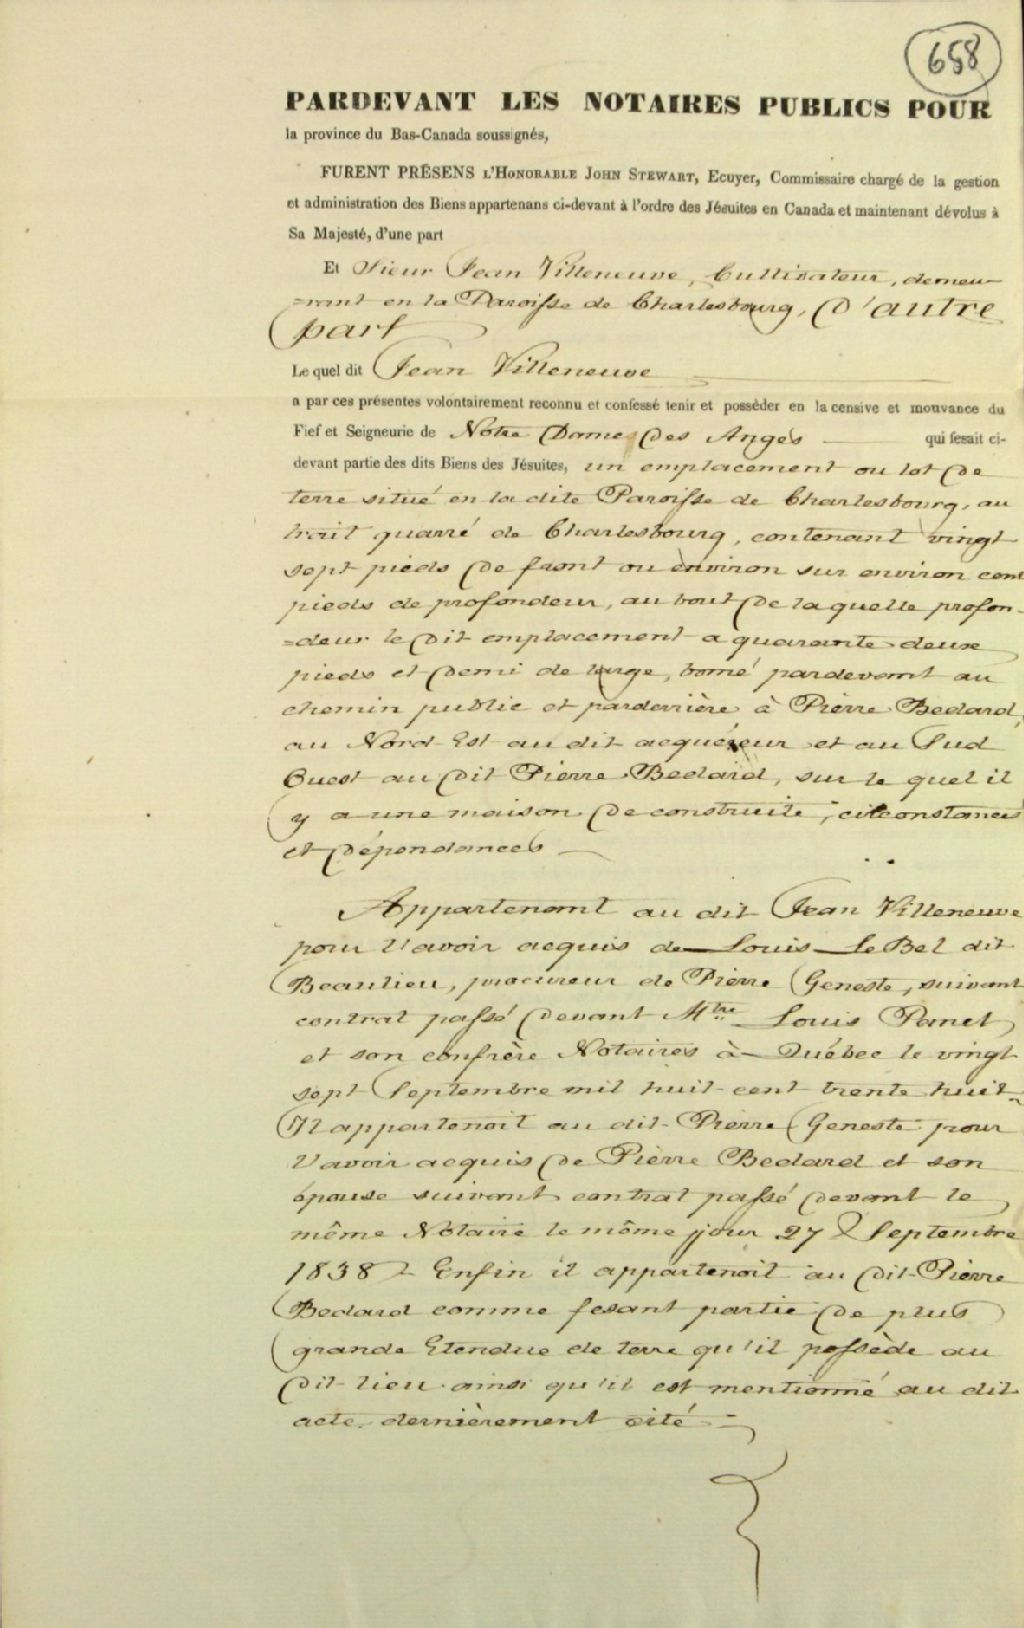 658
PARDEVANT LES NOTAIRES PUBLICS POUR
la province du Bas-Canada soussignés,
FURENT PRÉSENS L'HONORABLE JOHN STEWART, Ecuyer, Commissaire chargé de la gestion
et administration des Biens appartenans ci-devant à l'ordre des Jésuites en Canada et maintenant dévolus à
Sa Majesté, d'une part
Et Sieur Jean Villeneuve, Cultivateur, demeu-
-rant en la Paroisse de Charlesbourg, D'autre
part
Le quel dit Jean Villeneuve
a par ces présentes volontairement reconnu et confessé tenir et possèder en la censive et mouvance du
Fief et Seigneurie de Notre Dame Des Anges qui fesait ci-
devant partie des dits Biens des Jésuites, un emplacement ou lot De
terre situé en la dite Paroisse de Charlesbourg, au
trait quarré de Charlesbourg, contenant vingt
sept pieds De front ou environ sur environ cent
pieds de profondeur, au bout De laquelle profon-
=deur le Dit emplacement a quarante deux
pieds et Demi de large, borné pardevant au
chemin public et parderrière à Pierre Bedard,
au Nord Est au dit acquéreur et au Sud
Ouest au Dit Pierre Bedard, sur le quel il
y a une maison De construite, circonstances
et Dépendances
Appartenant au dit Jean Villeneuve
pour l'avoir acquis de Louis LeBel dit
Beaulieu, procureur de Pierre Geneste, suivant
contrat passé Devant Mtre Louis Panet
et son confrère Notaires à Québec le vingt
sept Septembre mil huit cent trente huit
Il appartenoit au dit Pierre Geneste pour
l'avoir acquis De Pierre Bedard et son
épouse suivant contrat passé Devant le
même Notaire le même jour 27 Septembre
1838. Enfin il appartenoit au Dit Pierre
Bedard comme fesant partie De plus
grande Etendue de terre qu'il possède au
Dit lieu ainsi qu'il est mentionné au dit
acte dernièrement cité